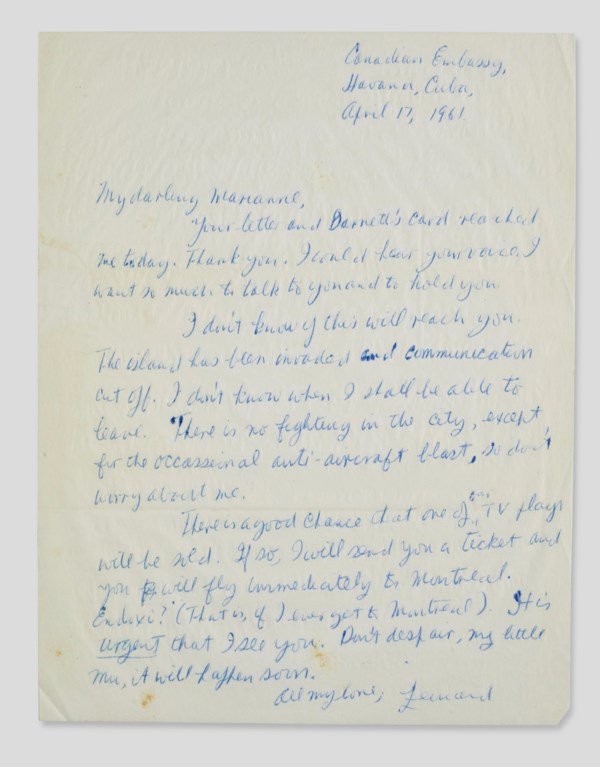 Canadian Embassy,
Havana, Cuba,
April 17, 1961
My darling Marianne,
Your letter and Barnett's card reached
me today. Thank you. I could hear your voice. I
want so much to talk to you and to hold you
I don't know if this will reach you.
The island has been invaded and communication
cut off. I don't know when I shall be able to
leave. There is no fighting in the city, except
for the occassional anti-aircraft blast, so don't
worry about me.
There is a good chance that one of our TV plays
will be sold. If so, I will send you a ticket and
you will fly immediately to Montreal.
Endaxi? (That is, if I ever get to Montreal). It is
urgent that I see you. Don't despair, my little
mu, it will happen soon.
All my love, Leonard